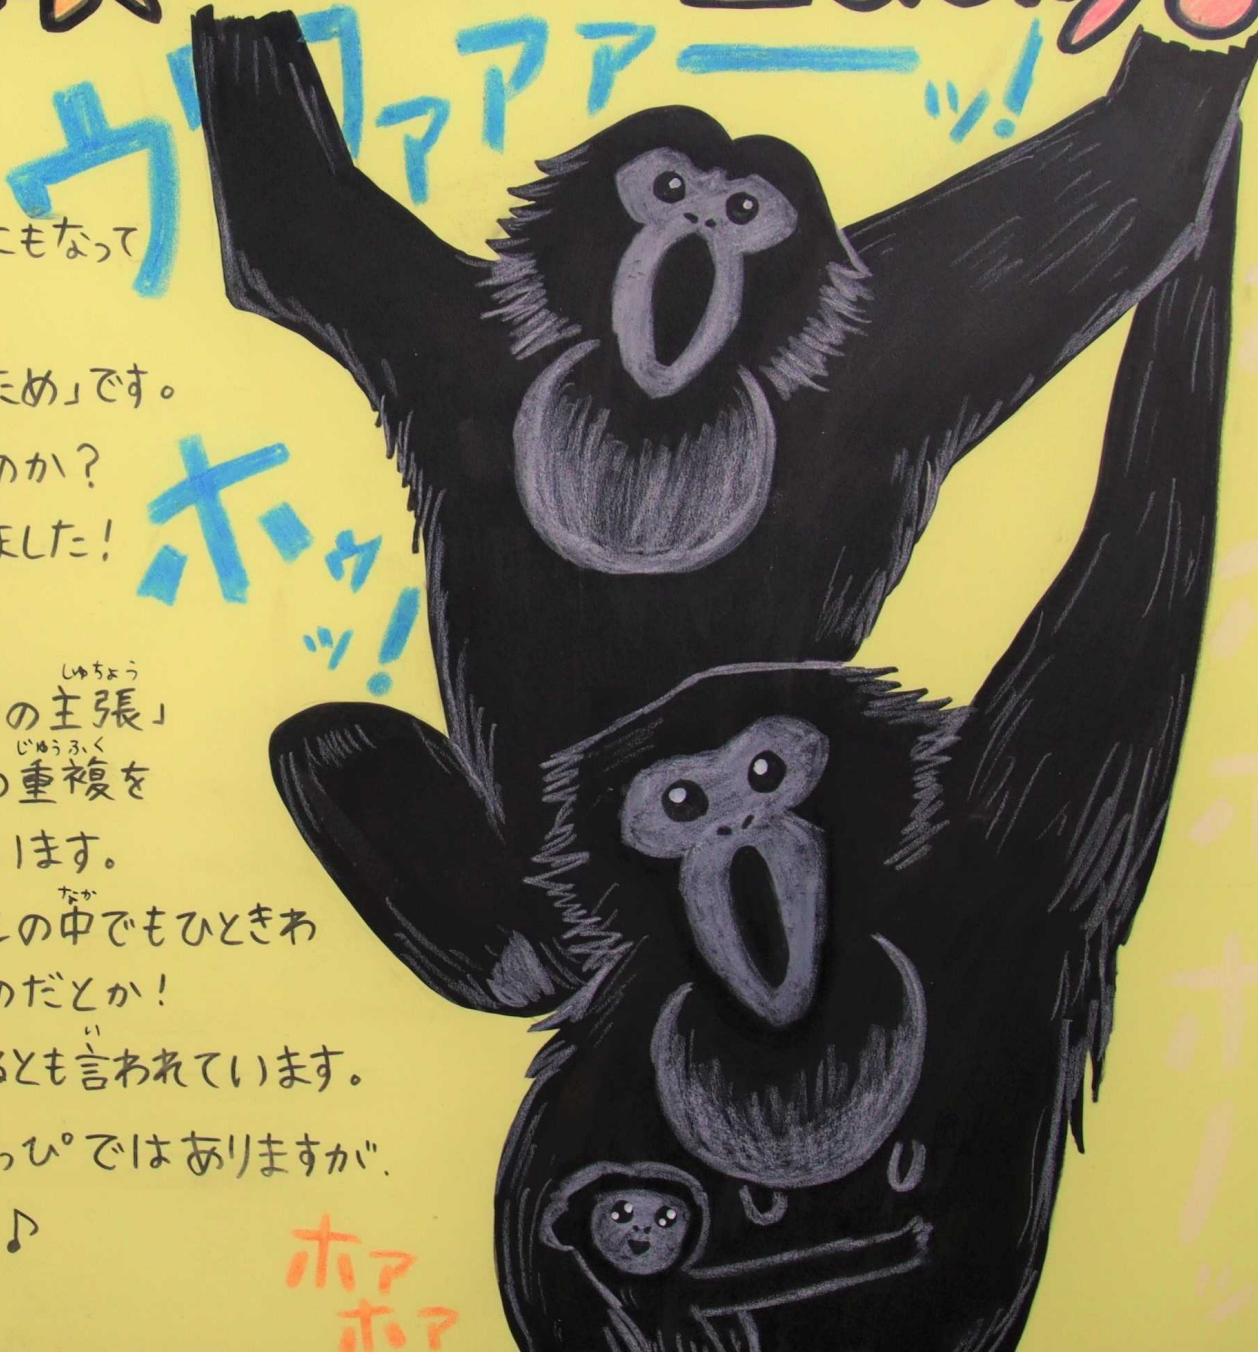 ヴヴァァアアーッ!
にもなって
ため」です。
のか?
ました!
ホゥッ!
の主張」
しゅちょう
の重複を
じゅうふく
ます。
の中でもひときわ
なか
のだとか!
とも言われています。
い
っぴ°ではありますが、
♪
ホァ
ホァ